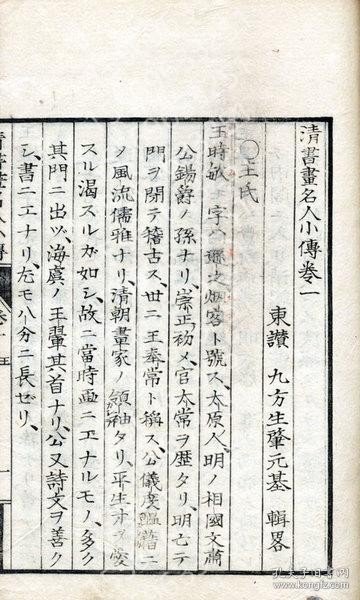 清書畫名人小傳卷一
東讃 九方生肇元基 輯畧
○王氏
王時敏王字ハ遜之烟客ト號ス太原人明ノ相國文肅
公錫爵ノ孫ナリ崇正初メ官太常ヲ歴タリ明亡テ
門ヲ閉テ稽古ス世ニ王奉常ト稱ス公儀度醞藉ニ
ノ風流儒雅ナリ清朝畫家ノ領袖タリ平生才ヲ愛
スル渇スルガ如シ故ニ當時画ニエナルモノ多ク
其門ニ出ヅ海虞ノ王翬其首ナリ公又詩文ヲ善ク
シ書ニエナリ尢モ八分ニ長ゼリ